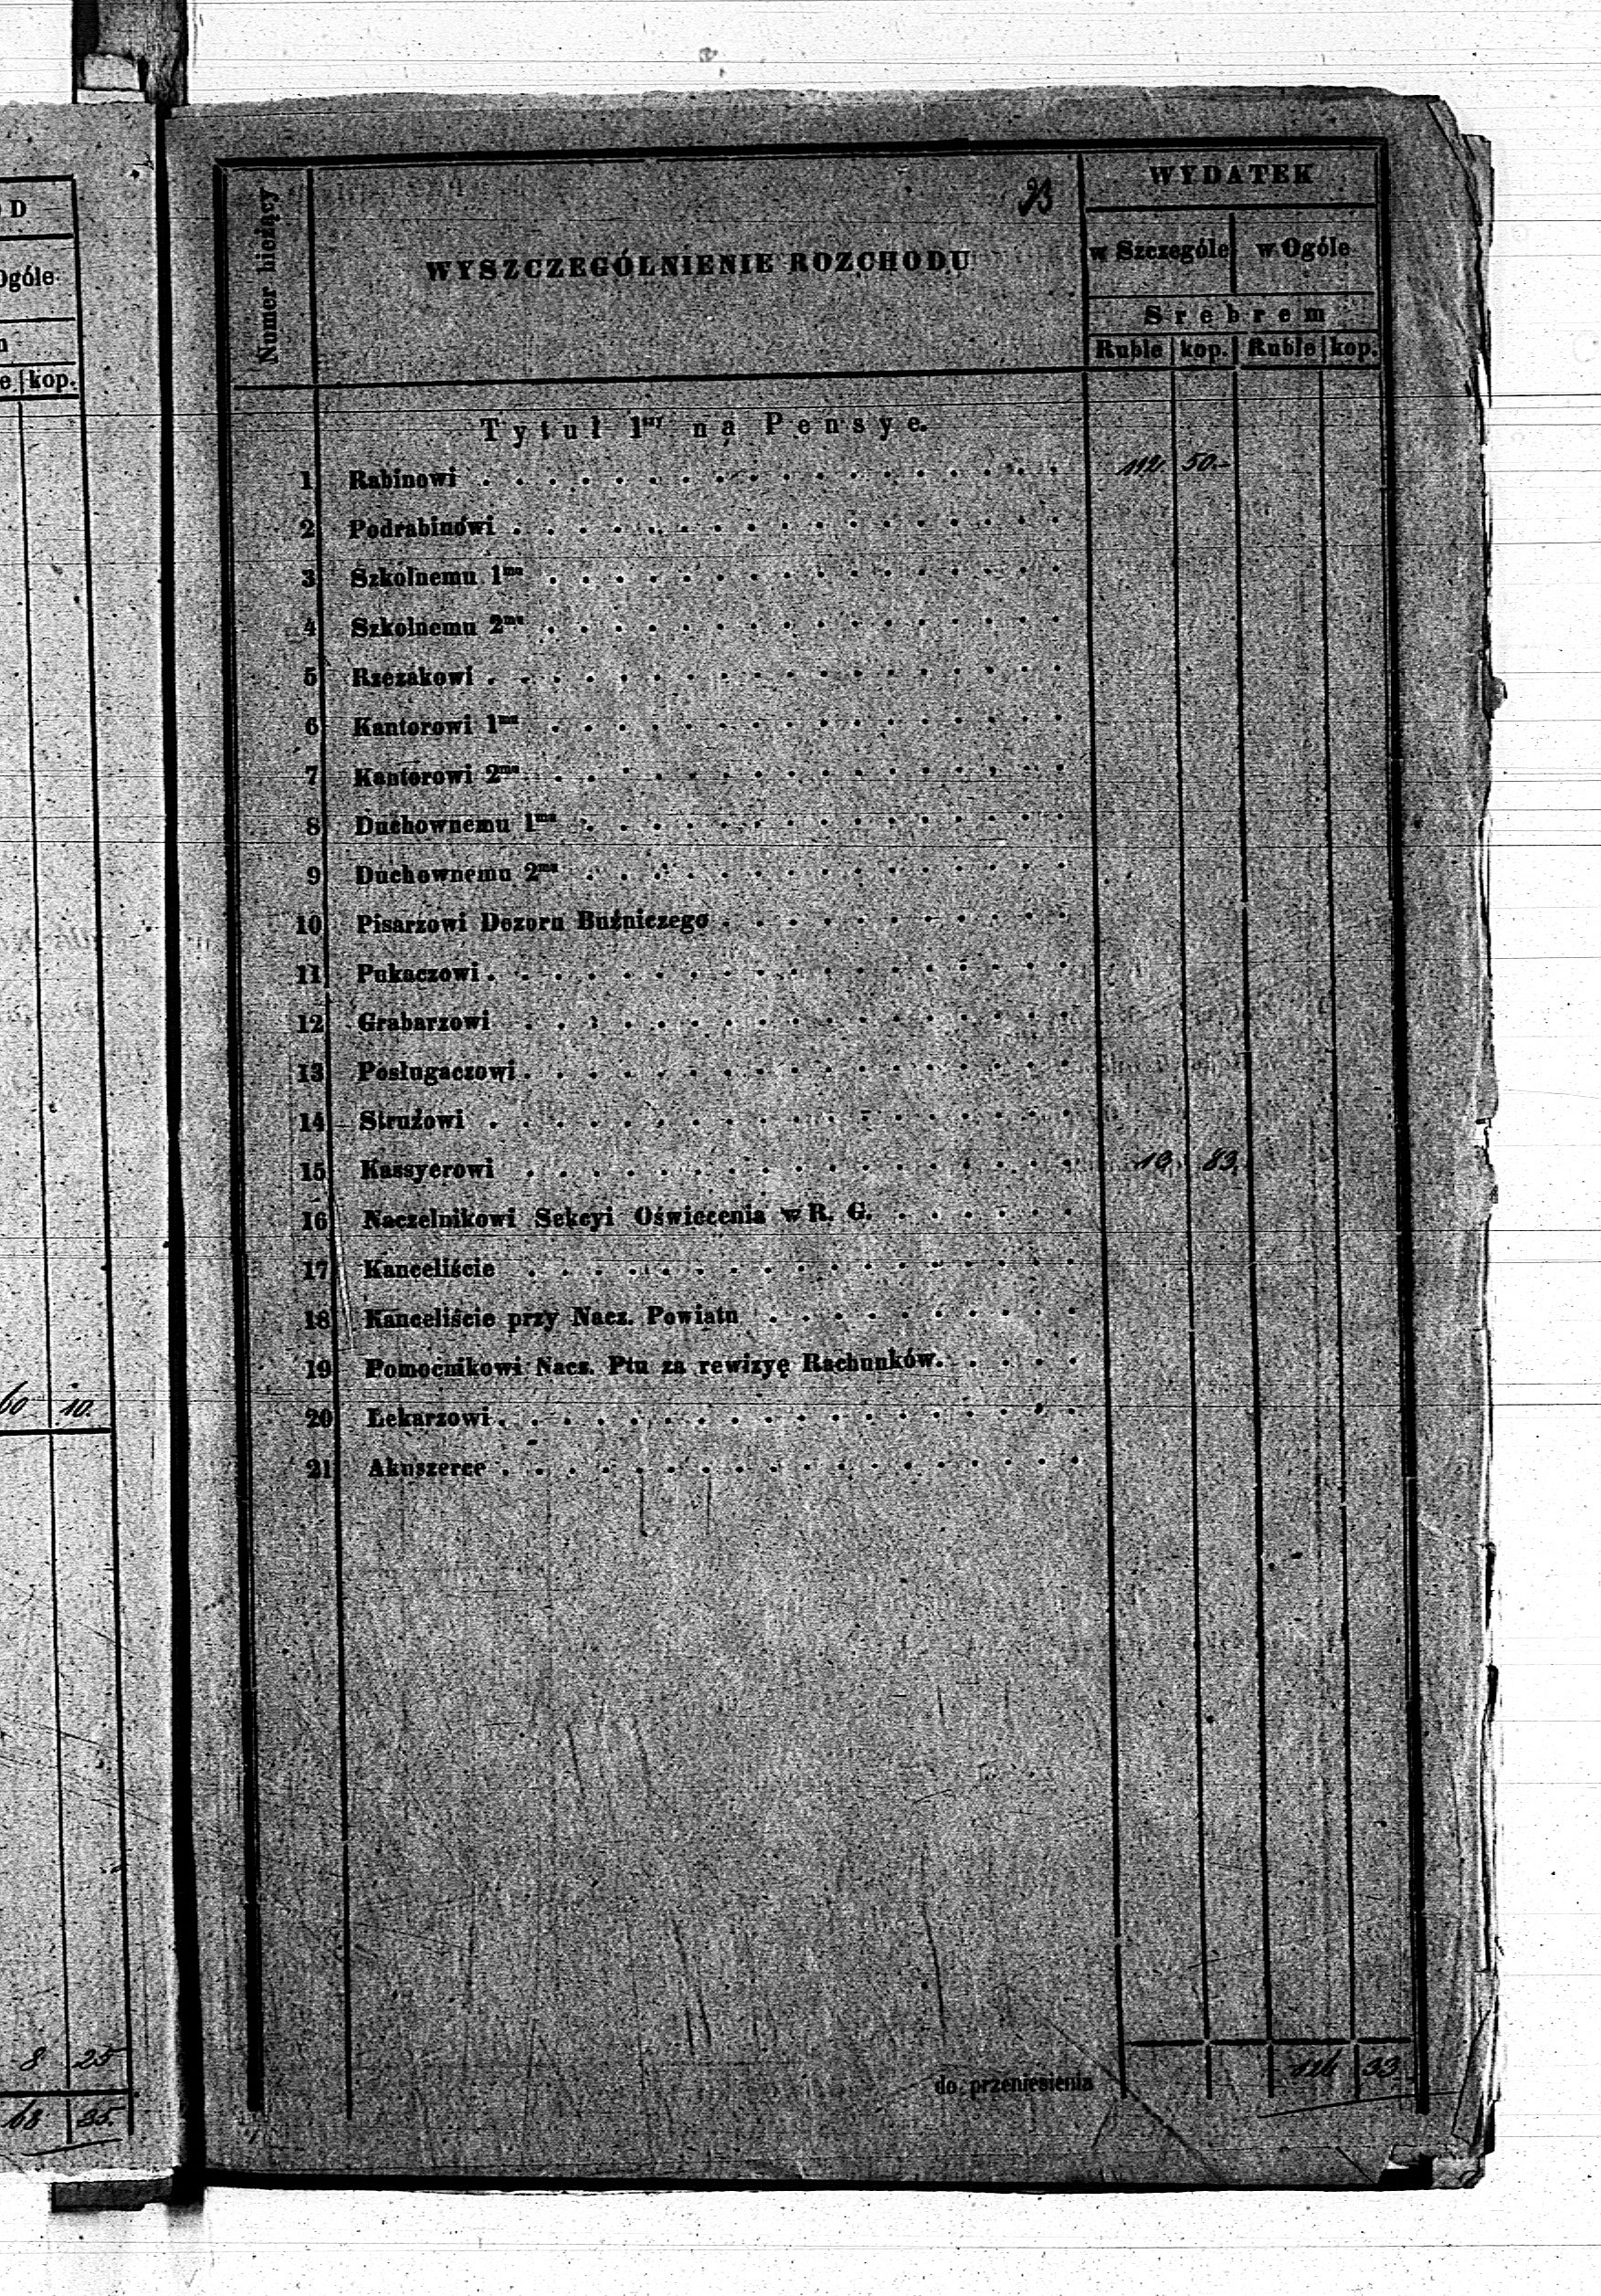 O D
Ogóle
e kop.
60 10.
8 25
68 35.
93
WYDATEK
Numer bieżący
WYSZCZEGÓLNIENIE ROZCHODU
w Szczególe w Ogóle
Srebrem
Ruble kop. Ruble kop.
Tytuł 1szy na Pensye.
1 Rabinowi 112 50.
2 Podrabinowi
3 Szkolnemu 1mu
4 Szkolnemu 2mu
5 Rzezakowi
6 Kantorowi 1mu
7 Kantorowi 2mu
8 Duchownemu 1mu
9 Duchownemu 2mu
10 Pisarzowi Dozoru Bużniczego
11 Pukaczowi
12 Grabarzowi
13 Posługaczowi
14 Strużowi
15 Kassyerowi 83.
16 Naczelnikowi Sekcyi Oświecenia w R. G.
17 Kanceliście
18 Kanceliście przy Nacz. Powiatu
19 Pomocnikowi Nacz. Ptu za rewizyę Rachunków.
20 Lekarzowi
21 Akuszerce
do przeniesienia 33